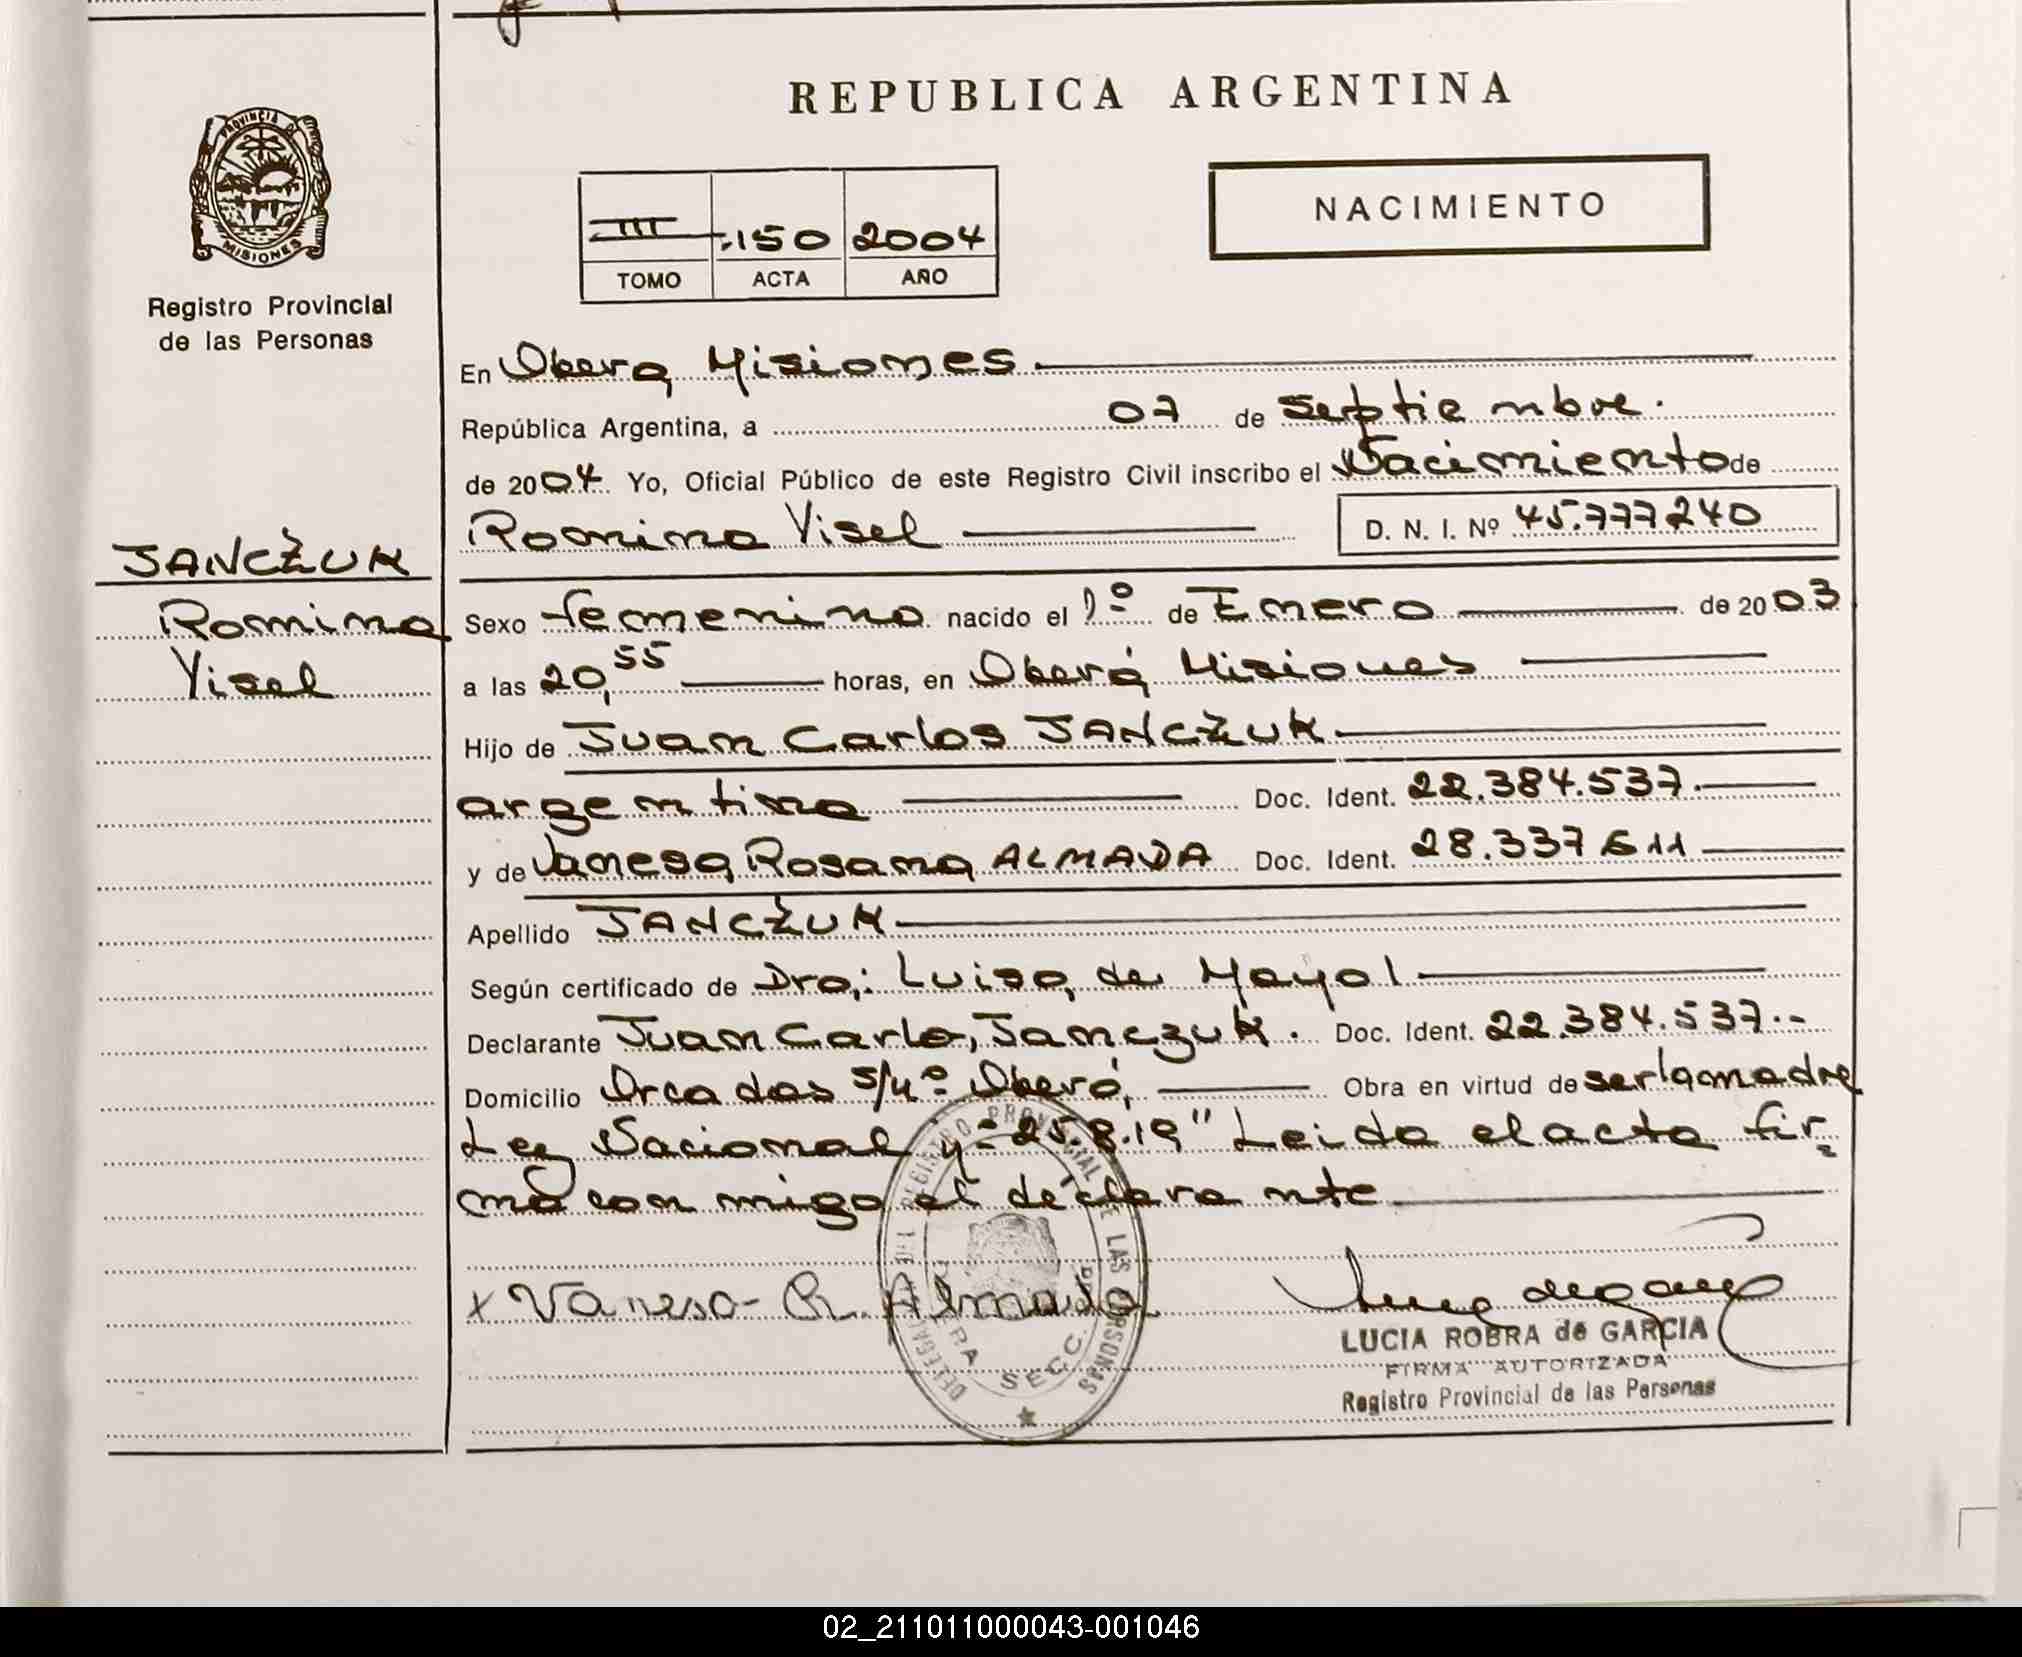 REPUBLICA ARGENTINA
PROVINCIA DE
MISIONES
Registro Provincial
de las Personas
III 150 2004
TOMO ACTA AÑO
NACIMIENTO
En Obera, Misiones
República Argentina, a 07 de Septiembre.
de 2004. Yo, Oficial Público de este Registro Civil inscribo el Nacimiento de
Romina Yisel D. N. I. Nº 45.777240
JANCŽUK
Romina
Yisel
Sexo femenino nacido el 1º de Enero de 2003
a las 20,55 horas, en Oberá Misiones
Hijo de Juan Carlos JANCŽUK
argentina Doc. Ident. 22.384.537.
y de Vanesa, Rosana, ALMADA Doc. Ident. 28.337611
Apellido JANCŽUK
Según certificado de Dra,: Luisa, de Mayol
Declarante Juan Carlo, Janczuk. Doc. Ident. 22.384.537.-
Domicilio s/nº Oberá, Obra en virtud de ser la madre
Ley Nacional nº 25.819" Leida el acta fir=
ma con migo el declarante
x Vanesa R. Almada
DELEGACION DEL REGISTRO PROVINCIAL DE LAS PERSONAS
OBERA
SECC.
LUCIA ROBRA de GARCIA
FIRMA AUTORIZADA
Registro Provincial de las Personas
02_211011000043-001046